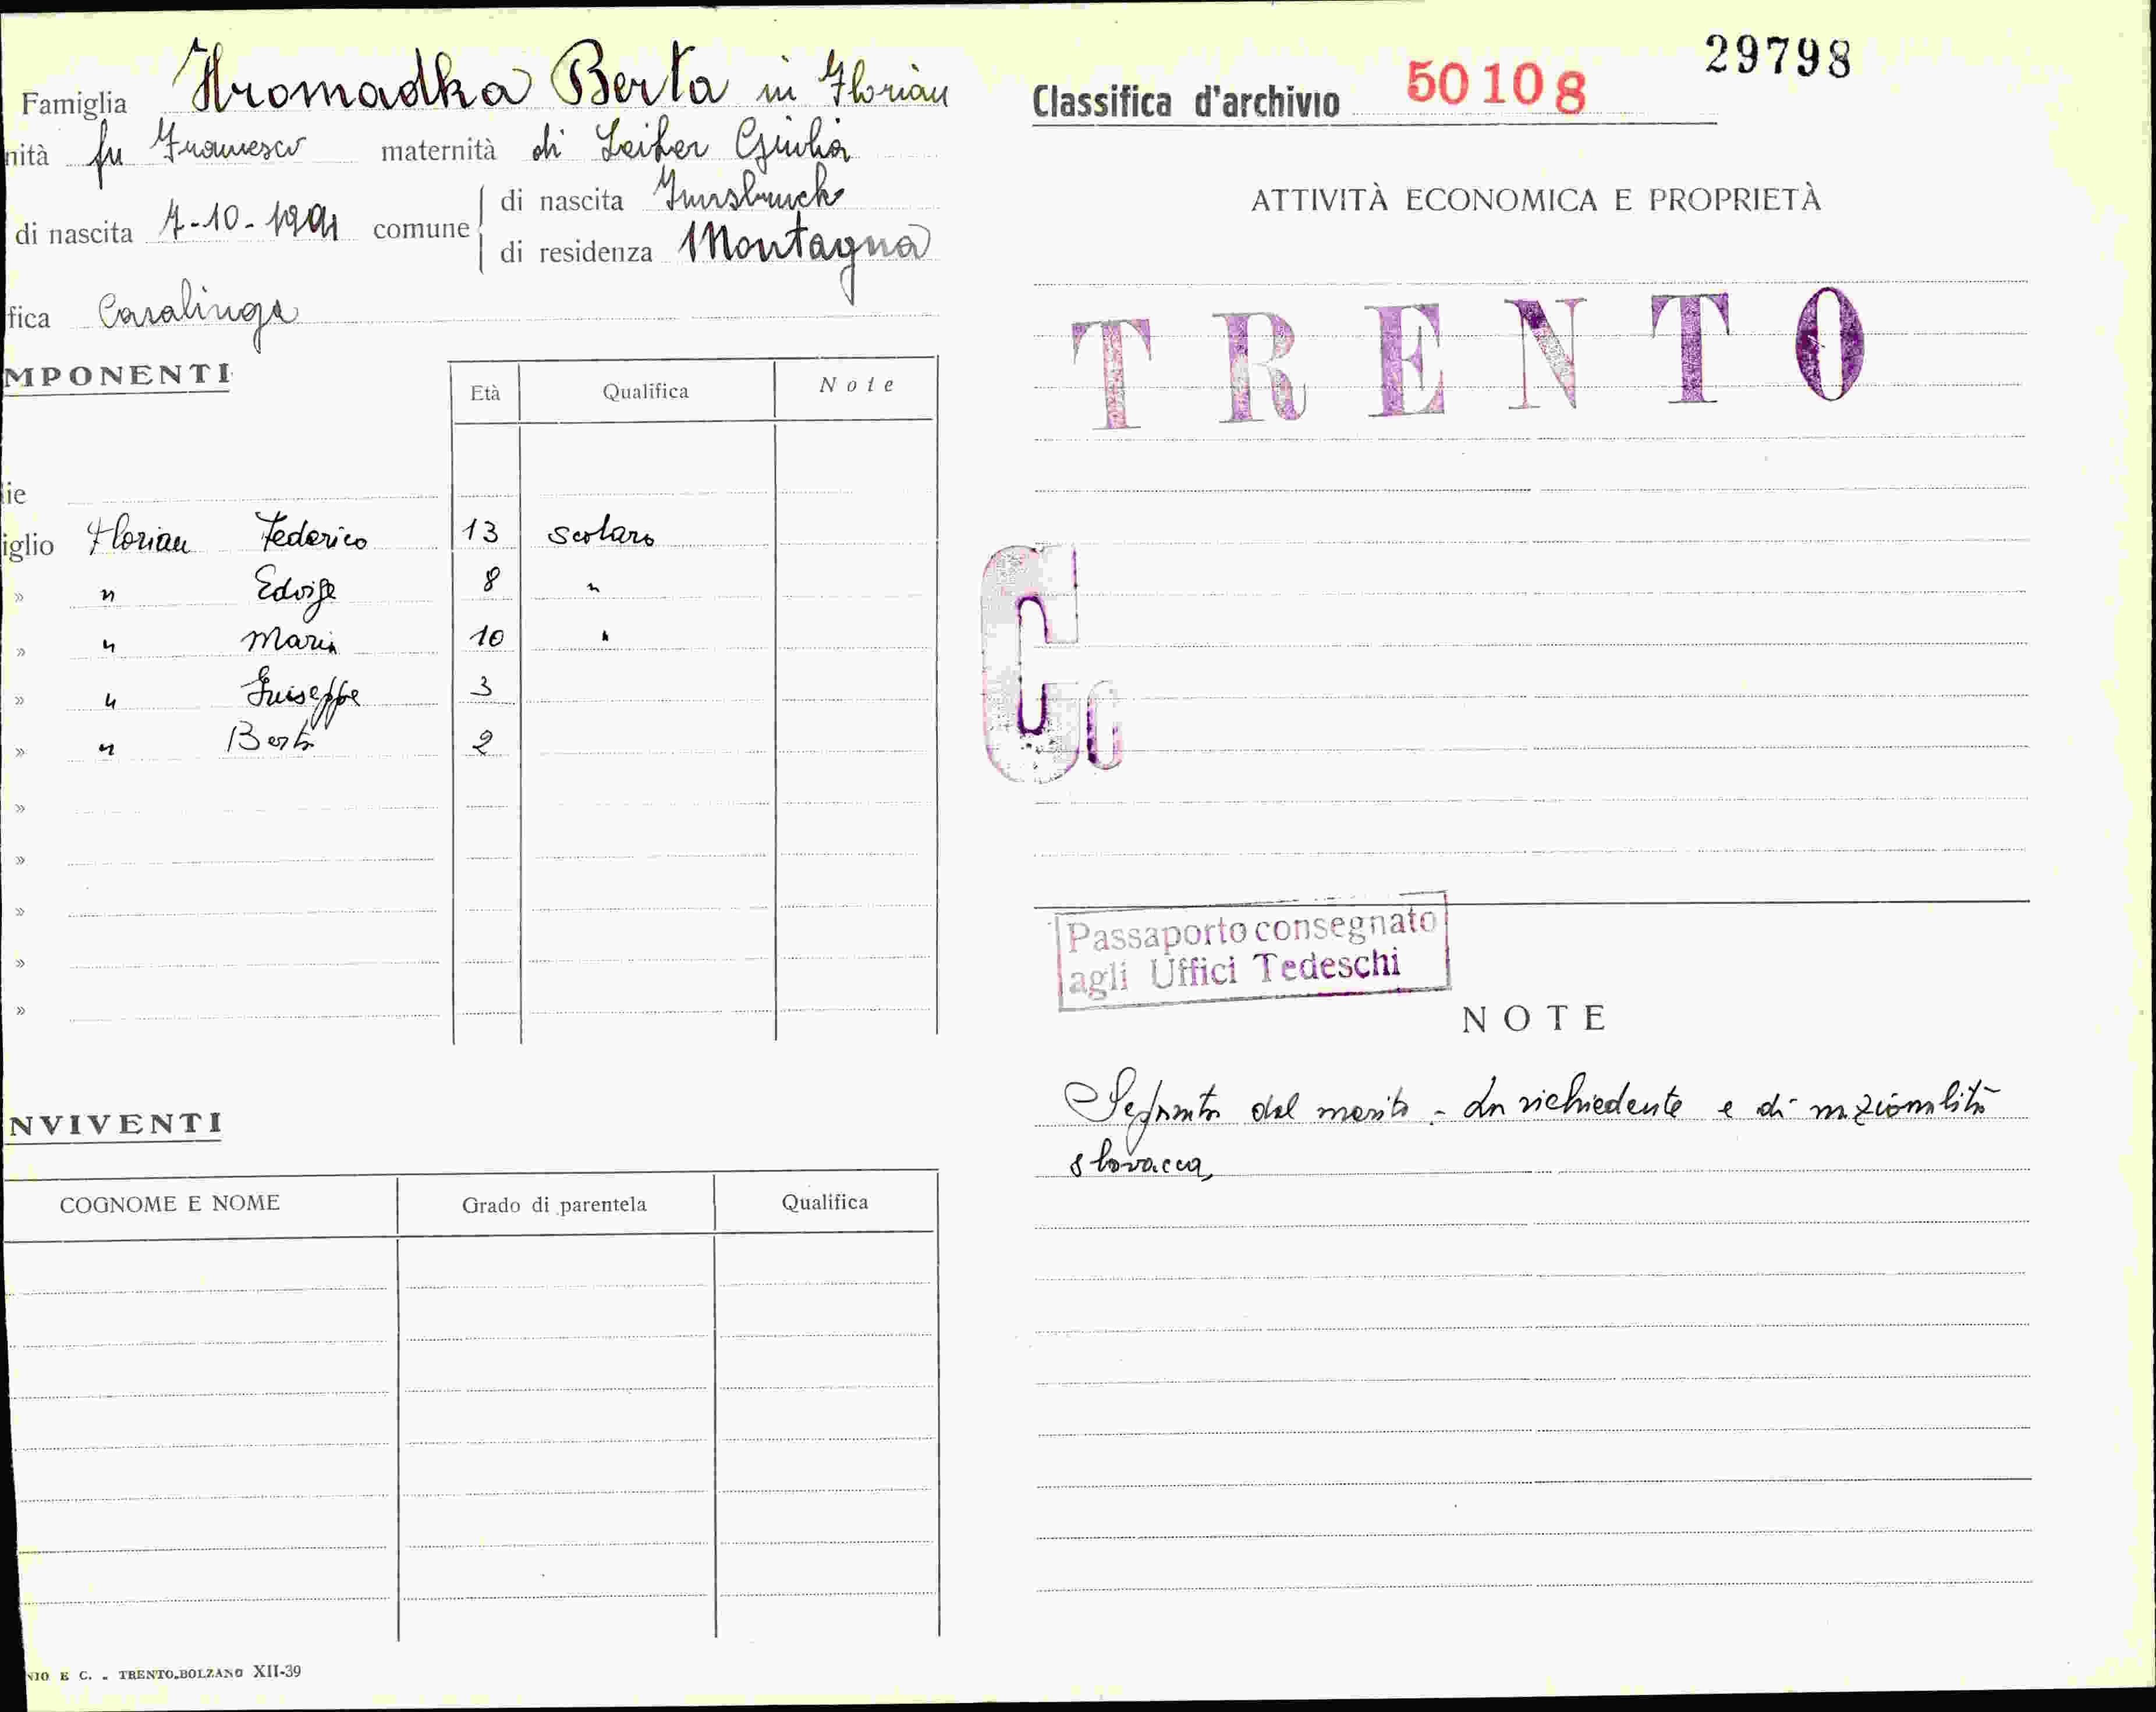 Famiglia Hromadka Berta in Florian
nità fu Francesco maternità di Leiter Giulia
di nascita 7-10-1901 comune di nascita Innsbruck
di residenza Montagna
fica Casalinga
MPONENTI
Età Qualifica Note
ie
iglio Florian Federico 13 scolaro
» " Edvige 8 "
» " Maria 10 "
» " Giuseppe 3
» " Berta 2
»
»
»
»
»
NVIVENTI
COGNOME E NOME Grado di parentela Qualifica
NIO E C. - TRENTO-BOLZANO XII-39
29798
Classifica d'archivio 50108
ATTIVITÀ ECONOMICA E PROPRIETÀ
TRENTO
G
Passaporto consegnato
agli Uffici Tedeschi
NOTE
Separata dal marito - La richiedente e di nazionalità
slovacca